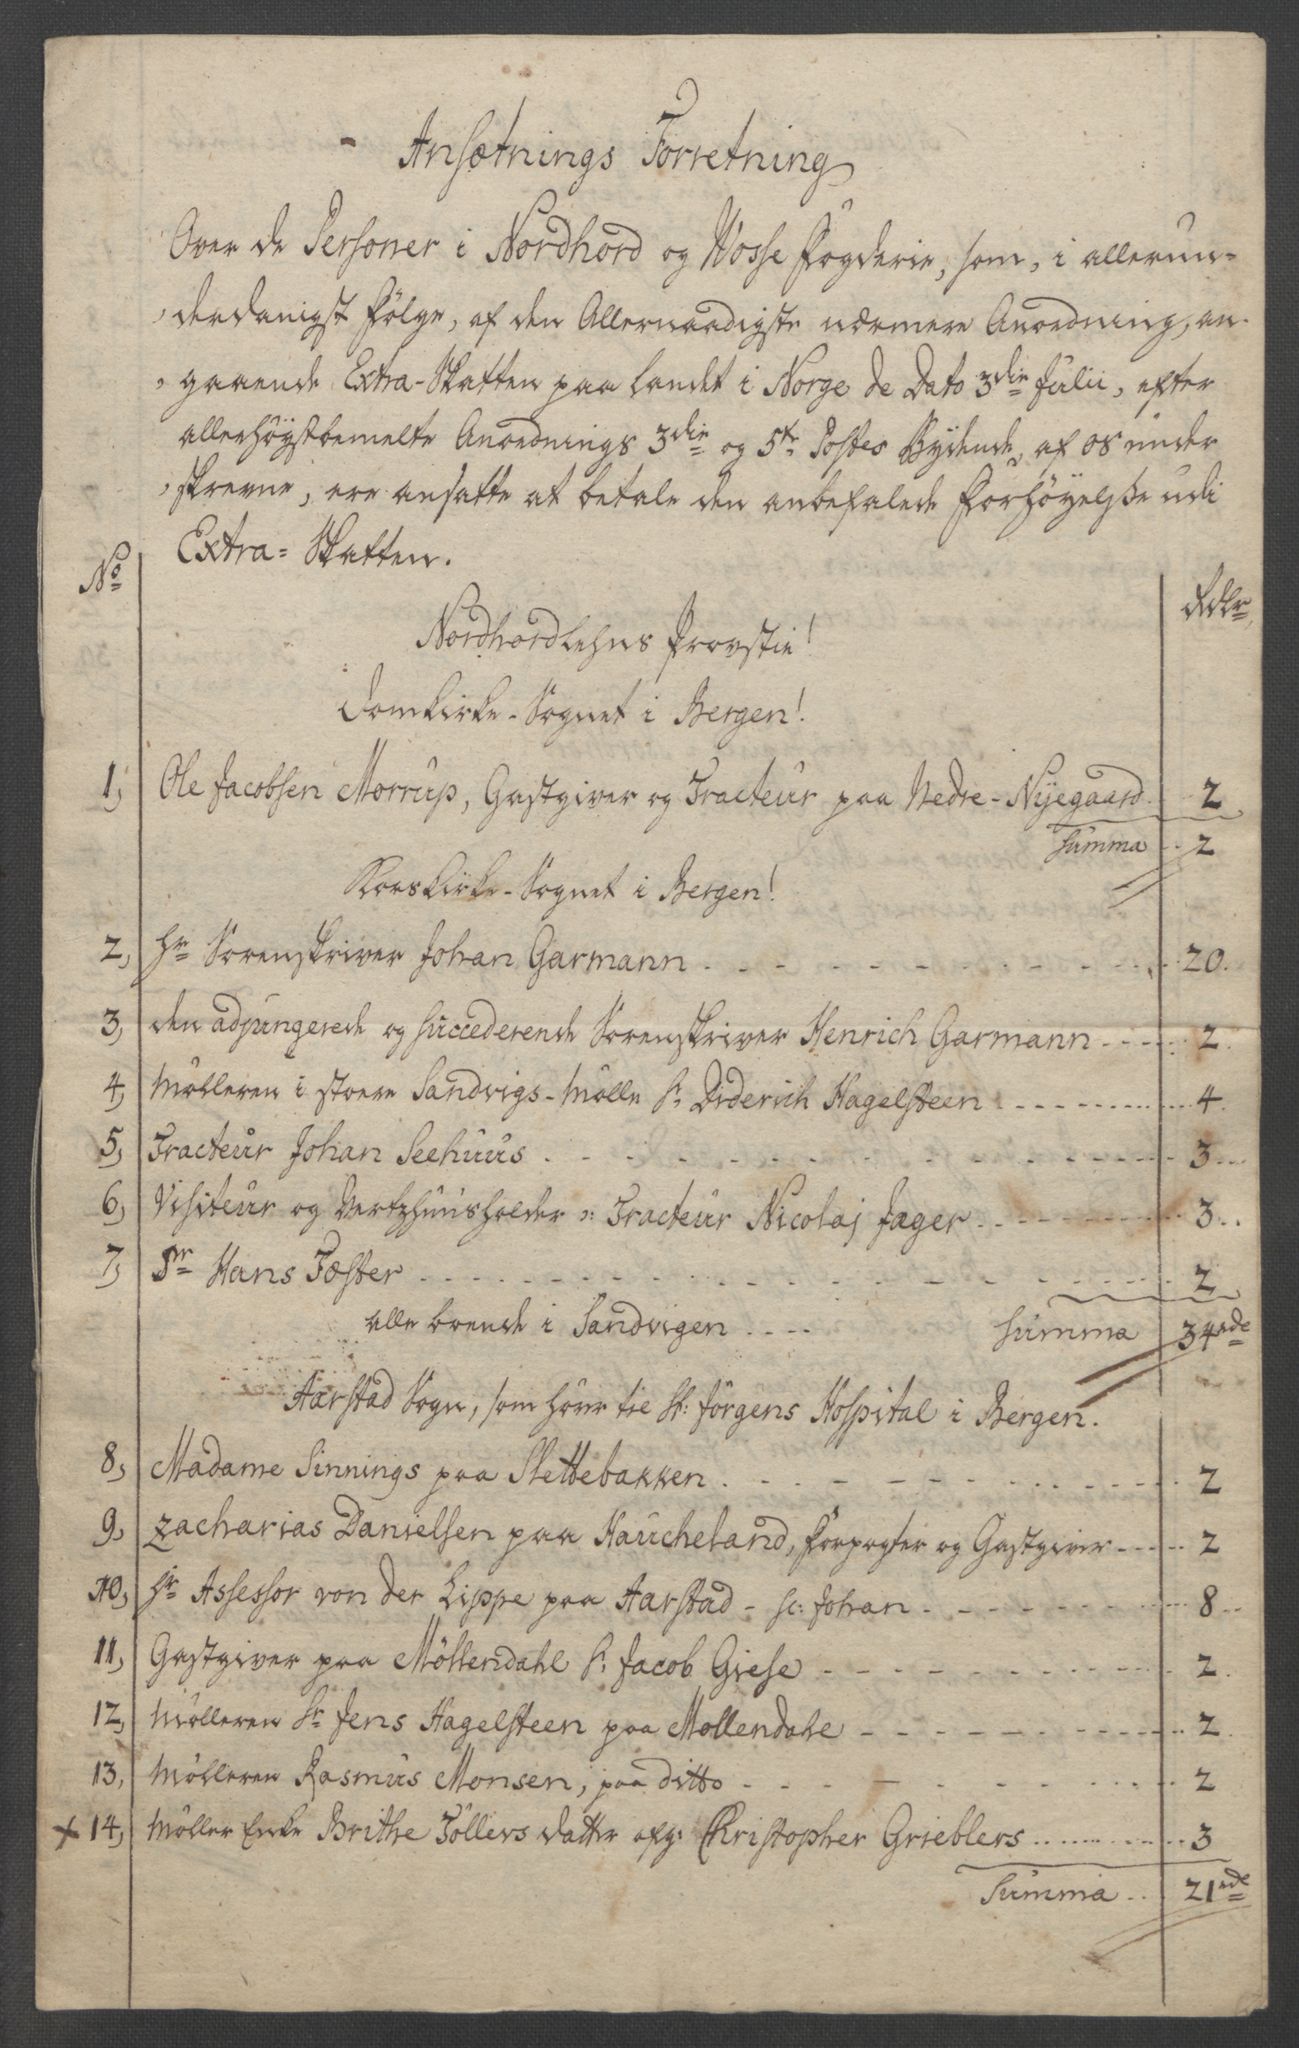 Ansætnings Forretning
Over de Personer i Nordhord og Wosse Fogderie, som, i allerun-
derdanigst Følge, af den Allernaadigste nærmere Anordning, an-
gaaende Extra-Skatten paa Landet i Norge de Dato 3die Julii, efter
allerhøystbemelte Anordnings 3die og 5te Postes Bydende, af os under
skrevne, ere ansatte at betale den anbefalede Forhøyelse udi
Extra-Skatten.
No
Rdlr
Nordhordlehns Provstie!
Domkirke-Sognet i Bergen!
1, Ole Jacobsen Morrup, Gastgiver og Tracteur paa Nedre-Nyegaard 2
Summa 2
Korskirke-Sognet i Bergen!
2, Hr Sorenskriver Johan Garmann 20.
3, den adjungerede og succederende Sorenskriver Henrich Garmann 2.
4, Mølleren i stoere Sandvigs-Mølle S: Diderich Hagelsteen 4.
5, Tracteur Johan Seehuus 3
6, Visiteur og Vertzhuusholder Tracteur Nicolaj Jager 3
7, Sr Hans Foster 2
alle boende i Sandvigen Summa 34rde
Aarstad Sogn, som hører til St: Jörgens Hospital i Bergen.
8, Madame Sinnings paa Slettebakken 2
9, Zacharias Danielsen paa Haucheland, Forpagter og Gastgiver 2
10, Hr Assessor von der Lippe paa Aarstad - sc: Johan 8
11, Gastgiver paa Möllendahl S: Jacob Giese 2.
12, Mølleren Sr Jens Hagelsteen paa Möllendahl 2
13, Mølleren Rasmus Monsen, paa ditto 2
x 14, Møller Enke Brithe Tøllers datter afg: Christopher Grieblers 3
Summa 21rde